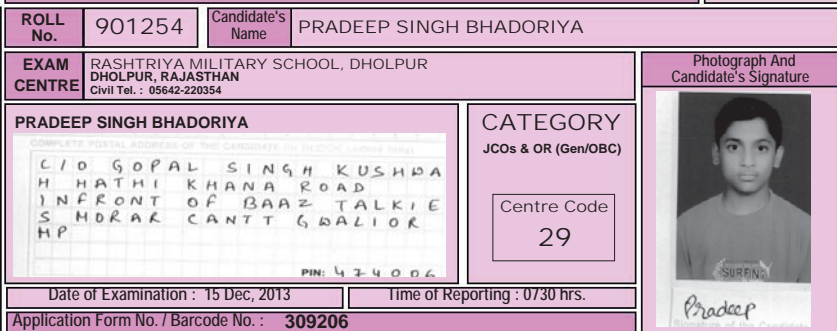 ROLL No. 901254 Candidate's Name PRADEEP SINGH BHADORIYA
EXAM CENTRE
RASHTRIYA MILITARY SCHOOL, DHOLPUR
DHOLPUR, RAJASTHAN
Civil Tel. : 05642-220354
Photograph And
Candidate's Signature
PRADEEP SINGH BHADORIYA
COMPLETE POSTAL ADDRESS OF THE CANDIDATE
C/O GOPAL SINGH KUSHWA
H HATHI KHANA ROAD
INFRONT OF BAAZ TALKIE
S MORAR CANTT GWALIOR
MP
PIN: 474006
CATEGORY
JCOs & OR (Gen/OBC)
Centre Code
29
SURFING
Pradeep
Signature of the Candidate
Date of Examination : 15 Dec, 2013 Time of Reporting : 0730 hrs.
Application Form No. / Barcode No. : 309206